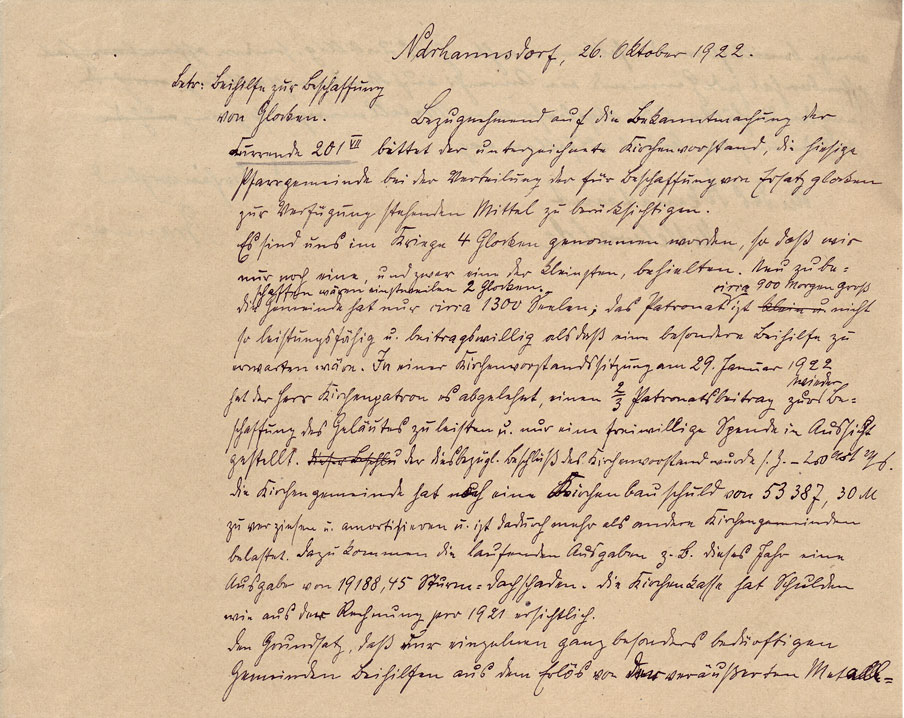 Ndrhannsdorf, 26. Oktober 1922.
Betr: Beihilfe zur Beschaffung
von Glocken.
Bezugnehmend auf die Bekanntmachung der
Kurrende 201 VII bittet der unterzeichnete Kirchenvorstand, die hiesige
Pfarrgemeinde bei der Verteilung der für Beschaffung von Ersatzglocken
zur Verfügung stehenden Mittel zu berücksichtigen.
Es sind uns im Kriege 4 Glocken genommen worden, so daß wir
nur noch eine, und zwar eine der kleinsten, behielten. Neu zu be=
schaffen wären einstweilen 2 Glocken.
circa 900 Morgen groß
die Gemeinde hat nur circa 1300 Seelen; das Patronat ist klein u. nicht
so leistungsfähig u. beitragswillig als daß eine besondere Beihilfe zu
erwarten wäre. In einer Kirchenvorstandssitzung am 29. Januar 1922
hat der Herr Kirchenpatron es abgelehnt, einen 2/3 Patronatsbeitrag zur Be=
wieder
schaffung des Geläutes zu leisten u. nur eine freiwillige Spende in Aussicht
gestellt. dieser Beschlu der diesbezügl. Beschluß des Kirchenvorstand wurde s. Z.
die Kirchengemeinde hat noch eine Kirchenbauschuld von 53387,30 M
zu verzinsen u. amortisieren u. ist dadurch mehr als andere Kirchengemeinden
belastet. dazu kommen die laufenden Ausgaben z. B. dieses Jahr eine
Ausgabe von 19188,45 Sturm=dachschaden. die Kirchenkasse hat Schulden
wie aus der Rechnung per 1921 ersichtlich.
den Grundsatz, daß nur einzelnen ganz besonders bedürftigen
Gemeinden Beihilfen aus dem Erlös von veräußerten Metall=